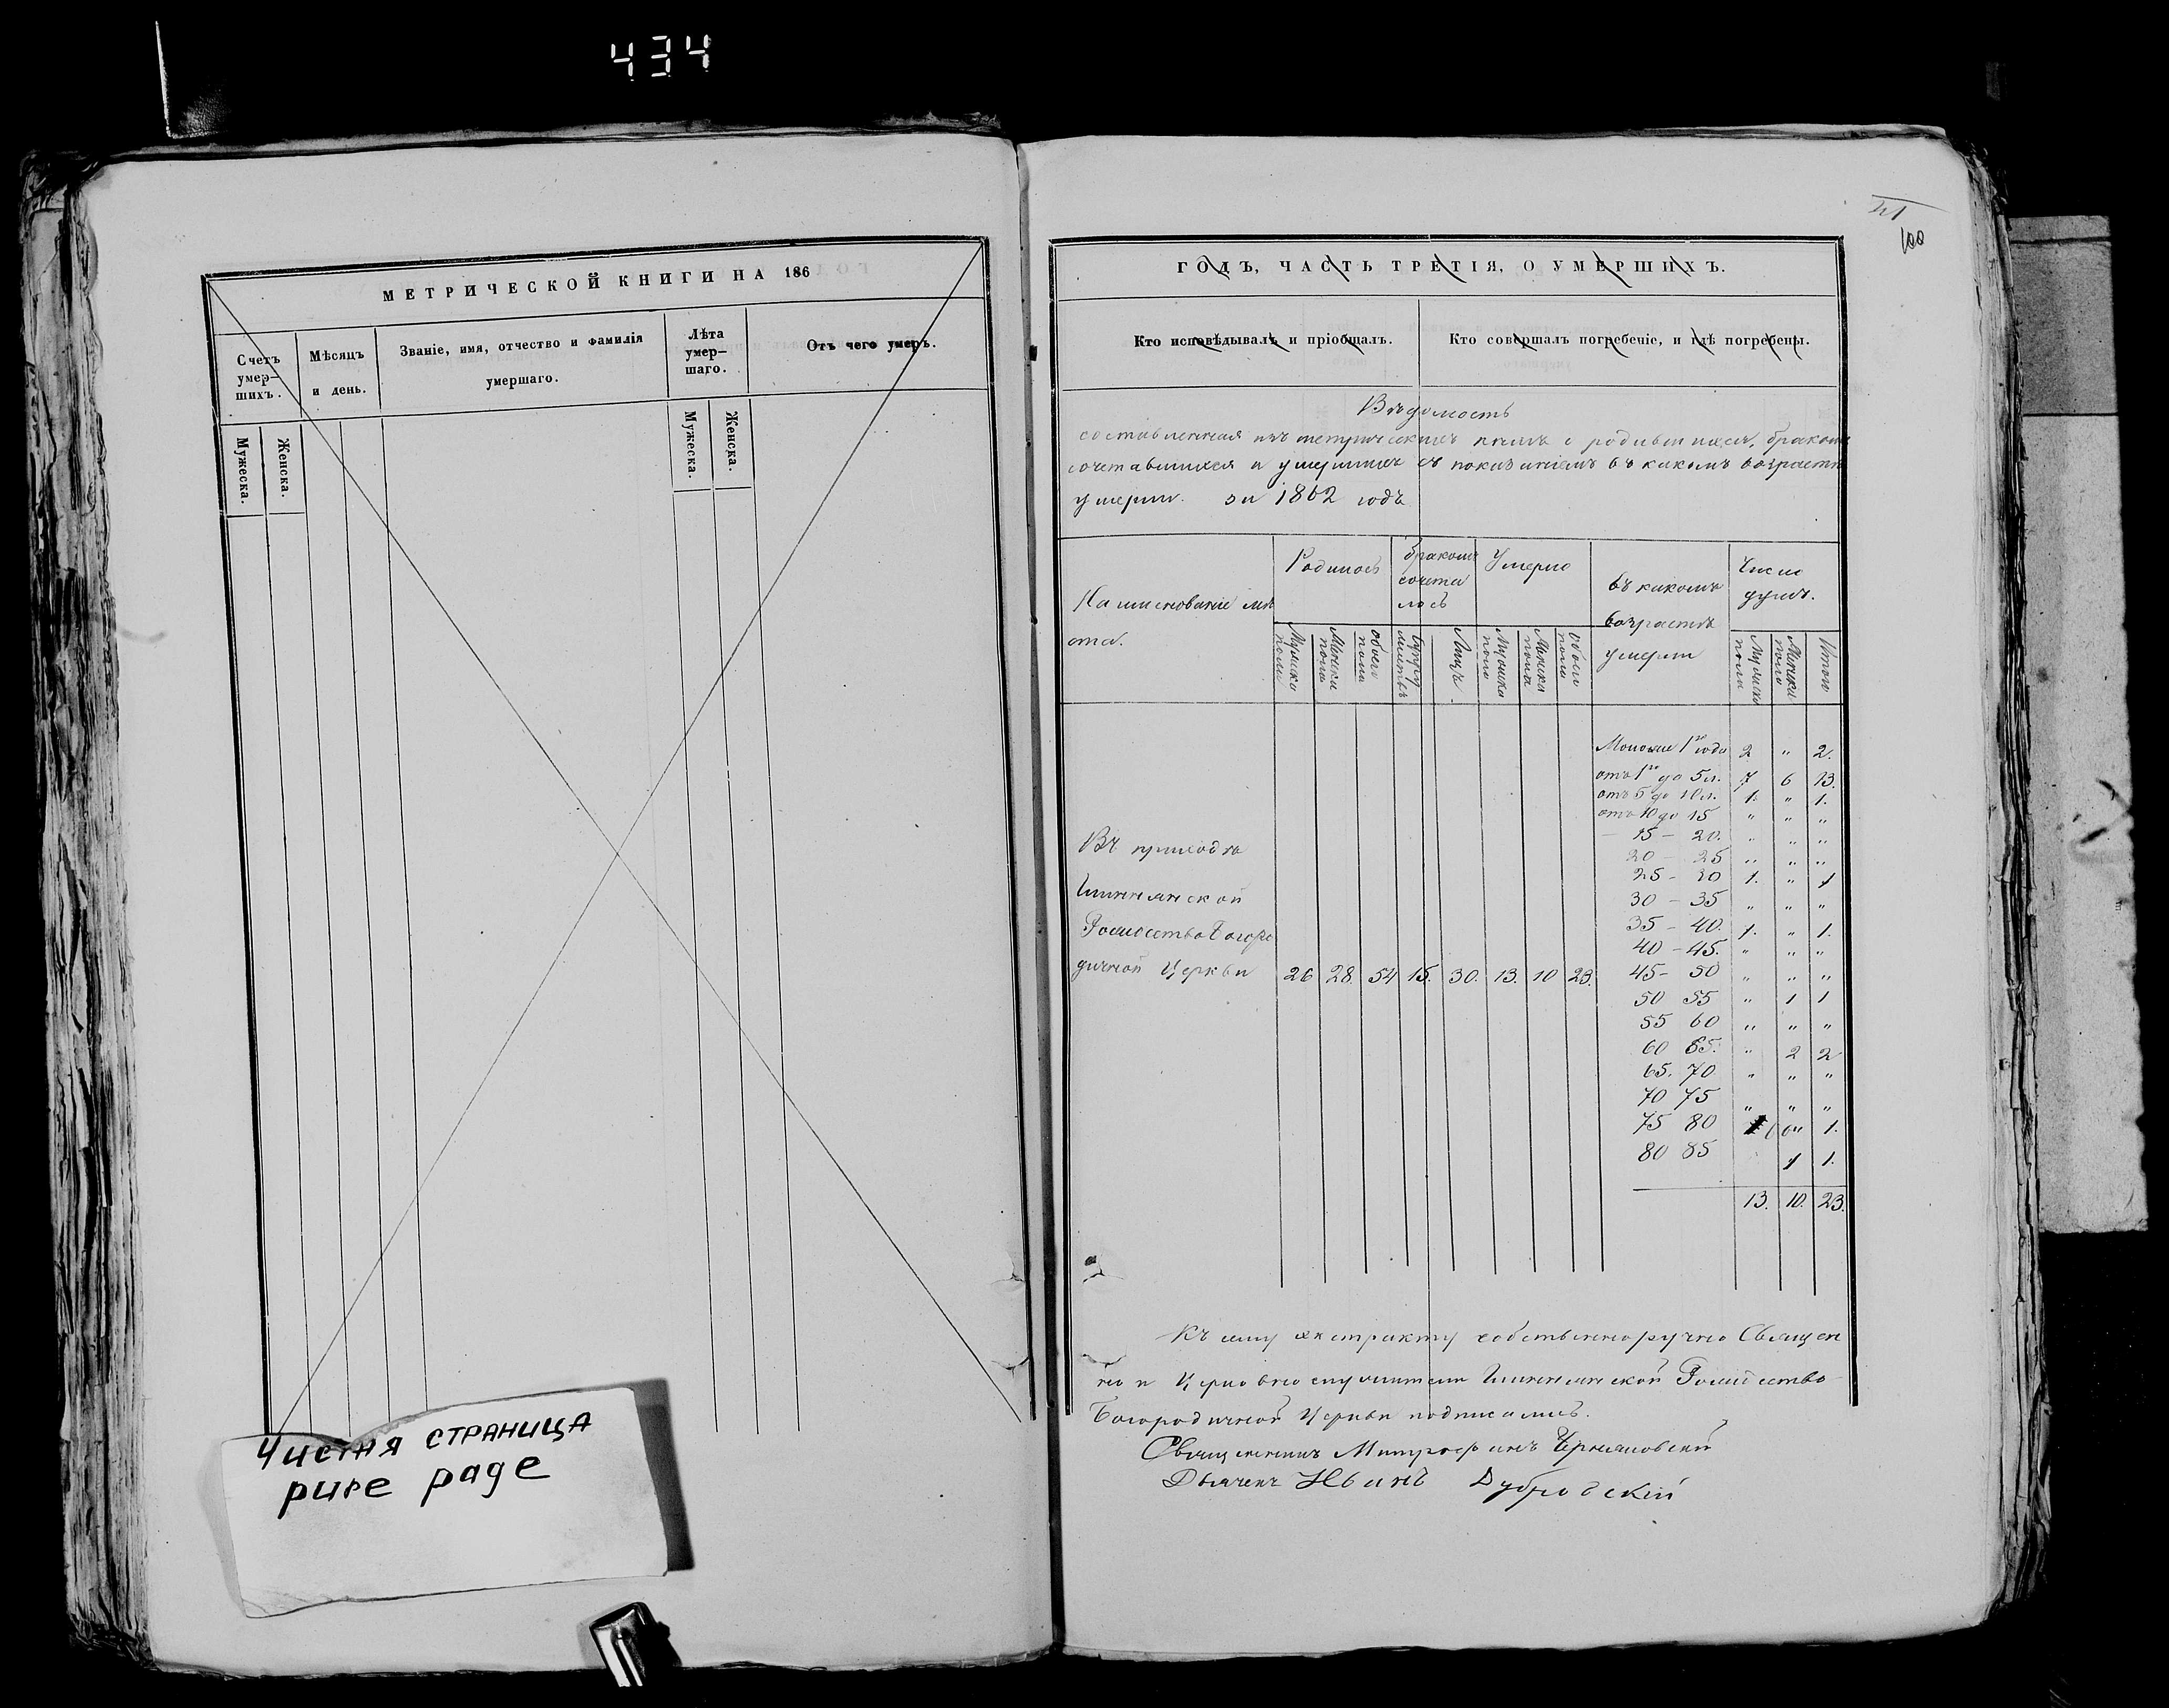 434
МЕТРИЧЕСКОЙ КНИГИ НА 186
Счетъ умер-шихъ.
Мѣсяцъ и день.
Званіе, имя, отчество и фамилія умершаго.
Лѣта умер-шаго.
Отъ чего умеръ.
Мужеска.
Женска.
Мужеска.
Женска.
Чистая страница
pure page
100
ГОДЪ, ЧАСТЬ ТРЕТІЯ, О УМЕРШИХЪ.
Кто исповѣдывалъ и пріобщалъ.
Кто совершалъ погребеніе, и гдѣ погребены.
Вѣдомость
составленная изъ метрическихъ книгъ о родившихся, бракомъ
сочетавшихся и умершихъ съ показаніемъ въ какомъ возрастѣ
умерли. за 1862 годъ
Наименованіе мѣ
ста.
Родилось
бракомъ
сочета
лось
Умерло
въ какомъ
возрастѣ
умерли
Число
душъ.
Мужска пола
Женска пола
Обоего пола
Лицъ.
Мужска пола
Женска пола
Обоего пола
Мужска пола
Женска пола
Итого
Моложе 1го года 2 " 2.
отъ 1го до 5л. 7 6 13.
отъ 5 до 10л. 1. " 1.
отъ 10 до 15 " " "
— 15 — 20. " " "
20 — 25 " " "
25 - 30 1. " 1
30 - 35 " " "
35 - 40. 1. " 1.
40 - 45. " " "
45 - 50 " " "
50 55 " 1 1
55 60 " " "
60 65. " 2 2
65. 70 " " "
70 75 " " "
75 80 1 " 1.
80 85 1 1.
13. 10. 23.
Въ приходѣ
Рождество Богоро
дичной Церкви 26 28. 54 15. 30. 13. 10 23.
Къ сему экстракту собственноручно Священ
но и Церковнослужители Рождество
Богородичной Церкви подписались.
Священникъ Митрофанъ Черняховскій
Дьячекъ Иванъ Дубровскій